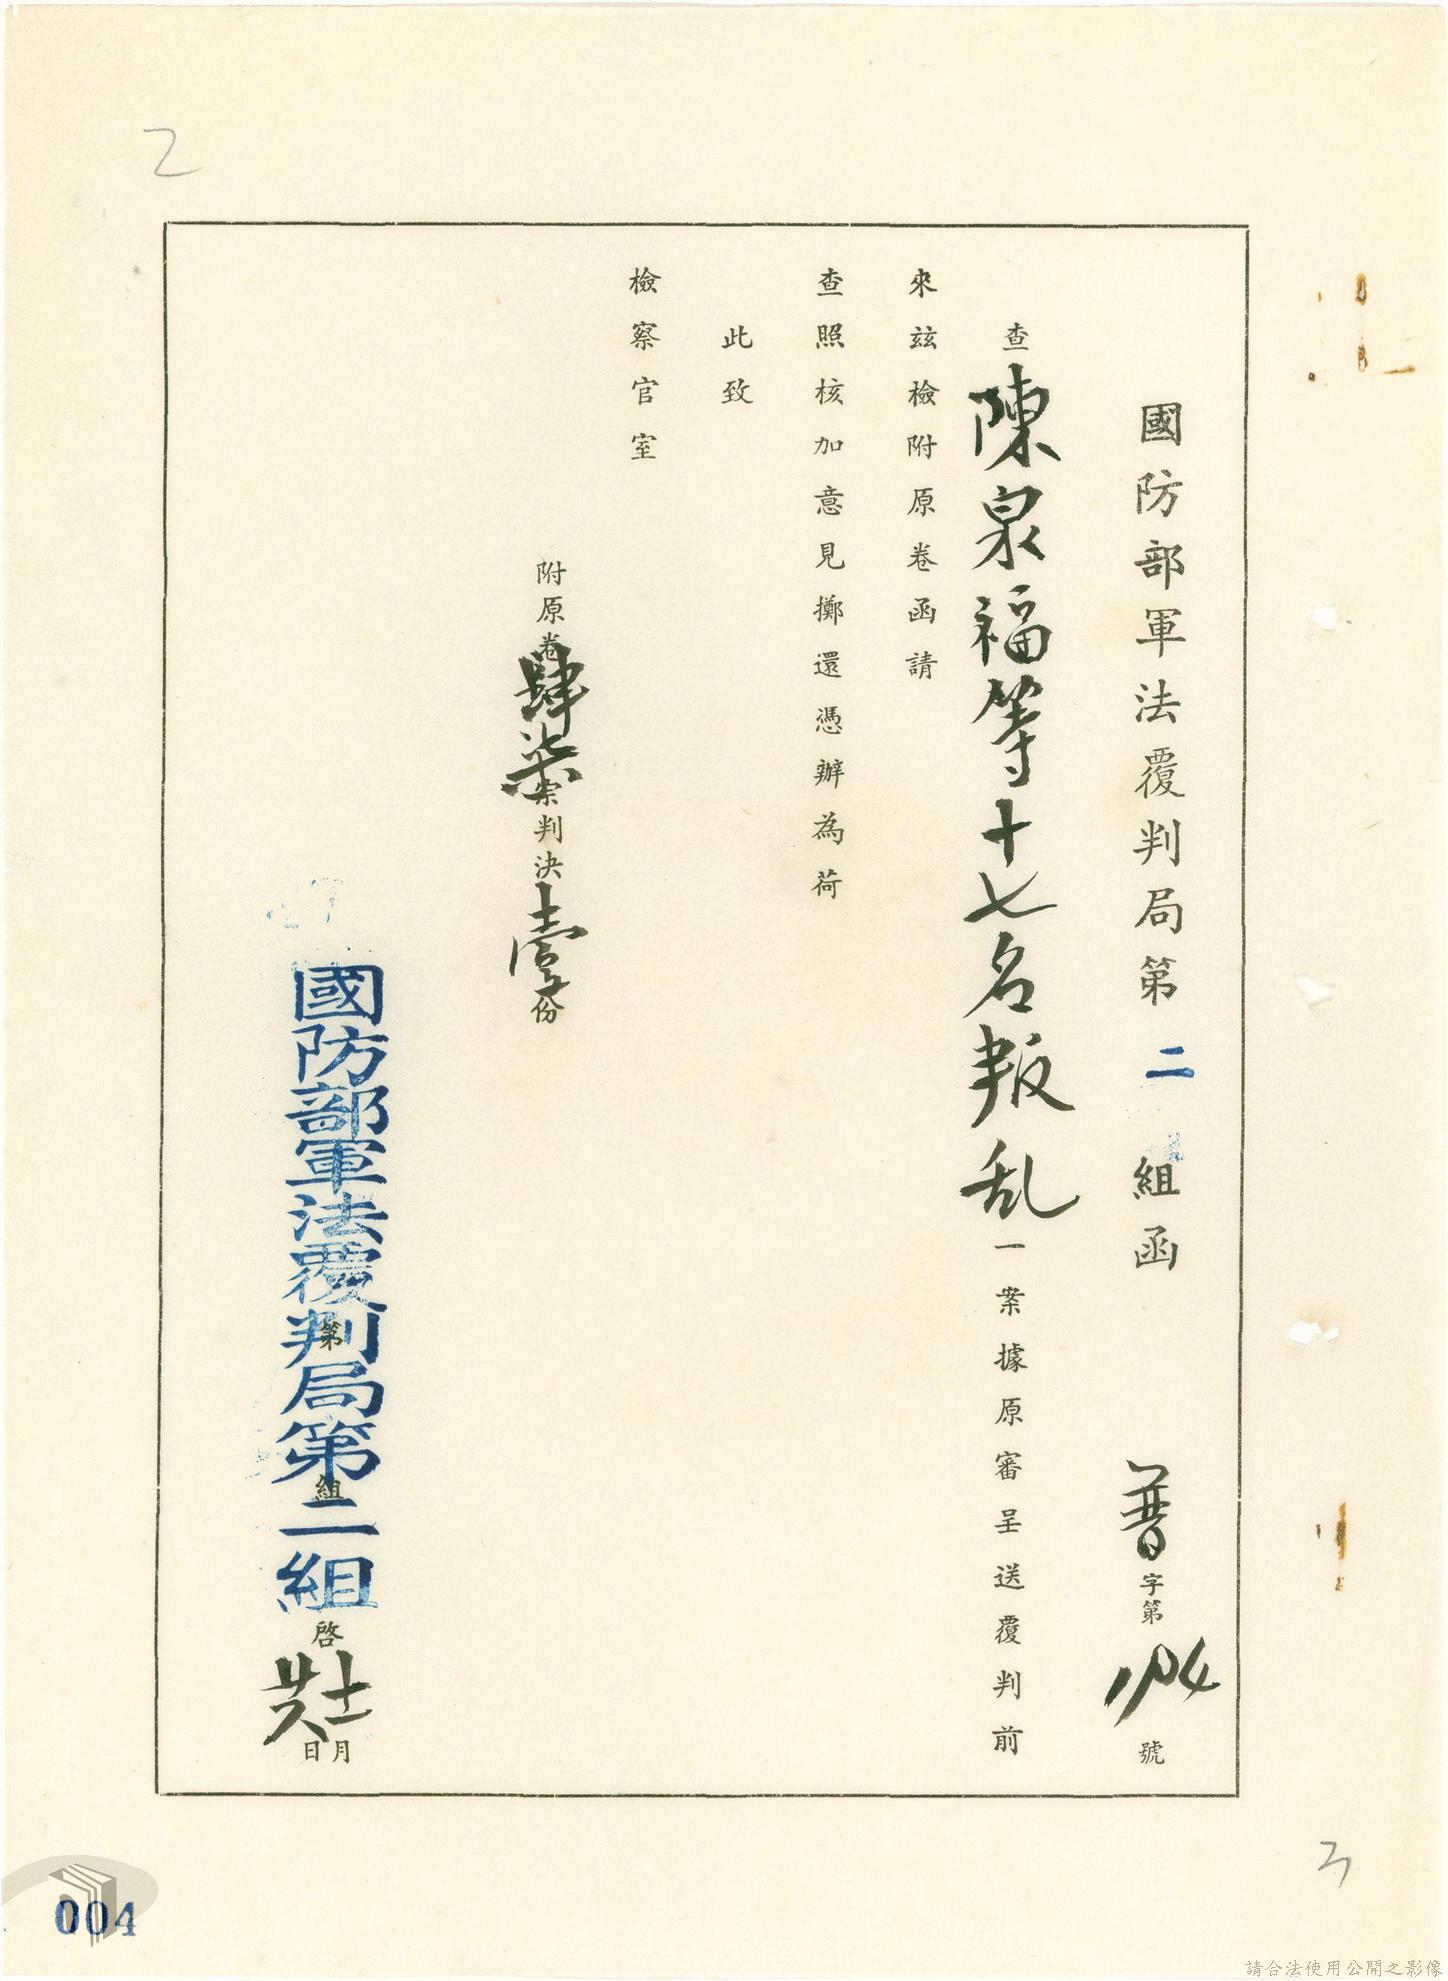 國防部軍法覆判局第二組函 普字第1704號
查陳泉福等十七名叛乱一案據原審呈送覆判前
來茲檢附原卷函請
查照核加意見擲還憑辦為荷
此致
檢察官室
附原卷肆柒宗判決壹份
國防部軍法覆判局第二組
第 組 啓 十二月廿八日
2
3
004
請合法使用公開之影像